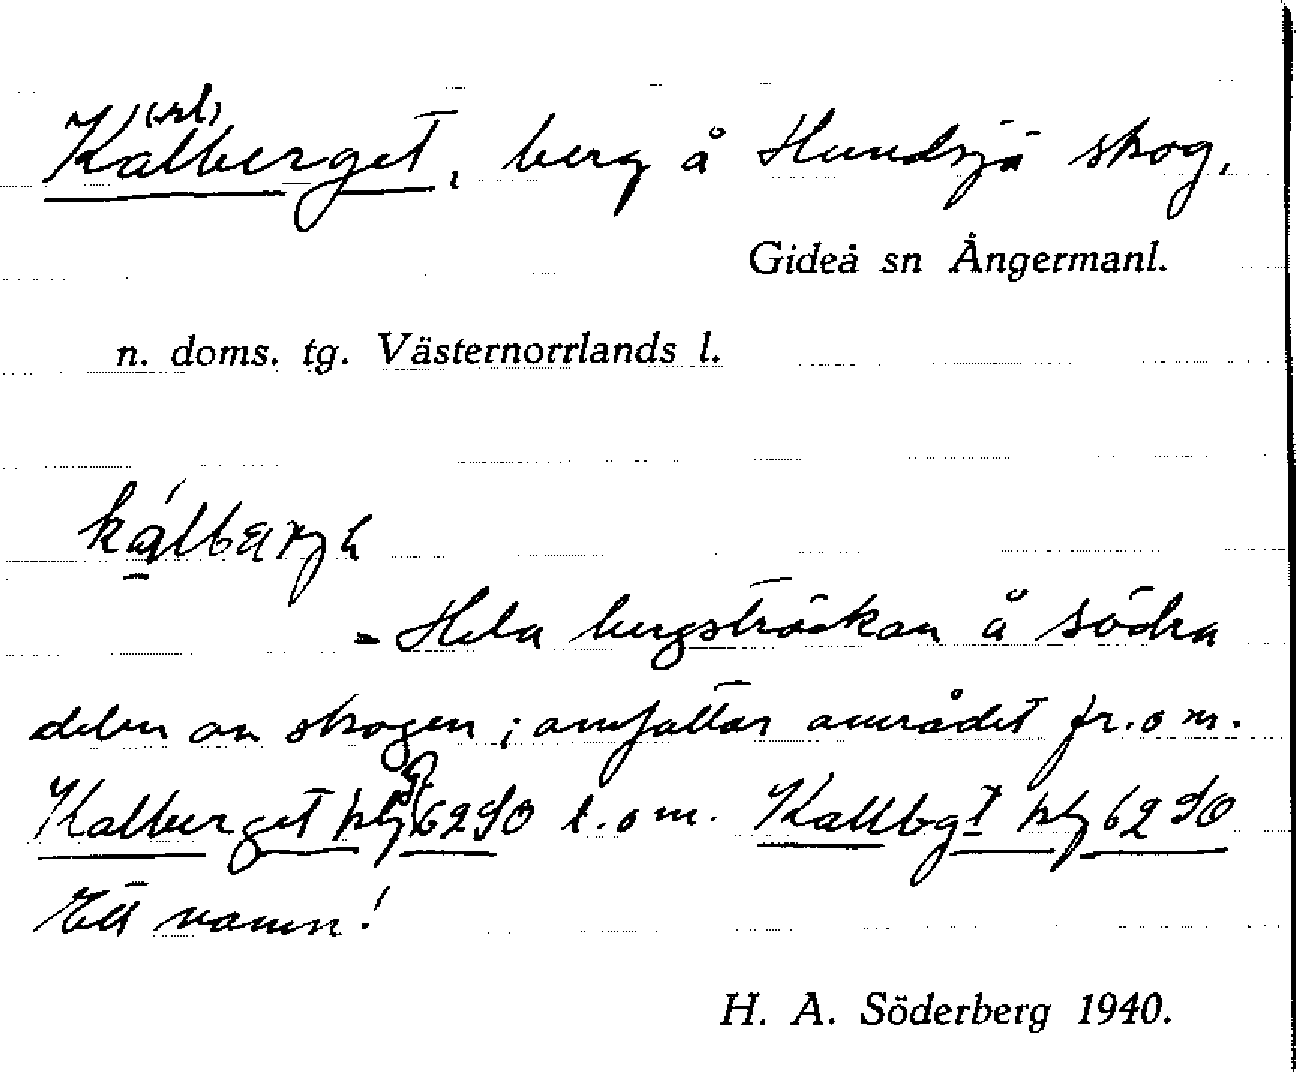 (rl)
Kalberget, berg å Hundsjö skog,
Gideå sn Ångermanl.
n. doms. tg. Västernorrlands l.
= Hela bergsträckan å södra
delen av skogen; omfattar området fr.o.m.
Kalberget plg 6290 t.o.m. Kallbgt plg 6290
Ett namn!
H. A. Söderberg 1940.